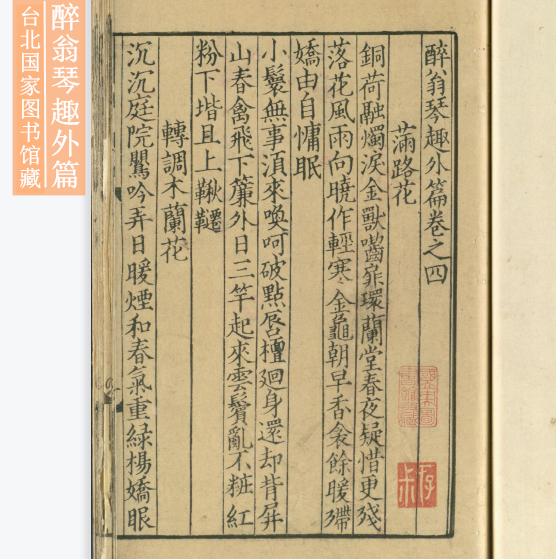 醉翁琴趣外篇
台北国家图书馆藏
醉翁琴趣外篇卷之四
滿路花
銅荷融燭淚金獸嚙扉環蘭堂春夜疑惜更殘
落花風雨向曉作輕寒金龜朝早香衾餘暖殢
嬌由自慵眠
小鬟無事湏來喚呵破點唇檀廻身還却背屏
山春禽飛下簾外日三竿起來雲鬢亂不粧紅
粉下堦且上鞦韆
轉調木蘭花
沉沉庭院鸎吟弄日暖煙和春氣重綠楊嬌眼